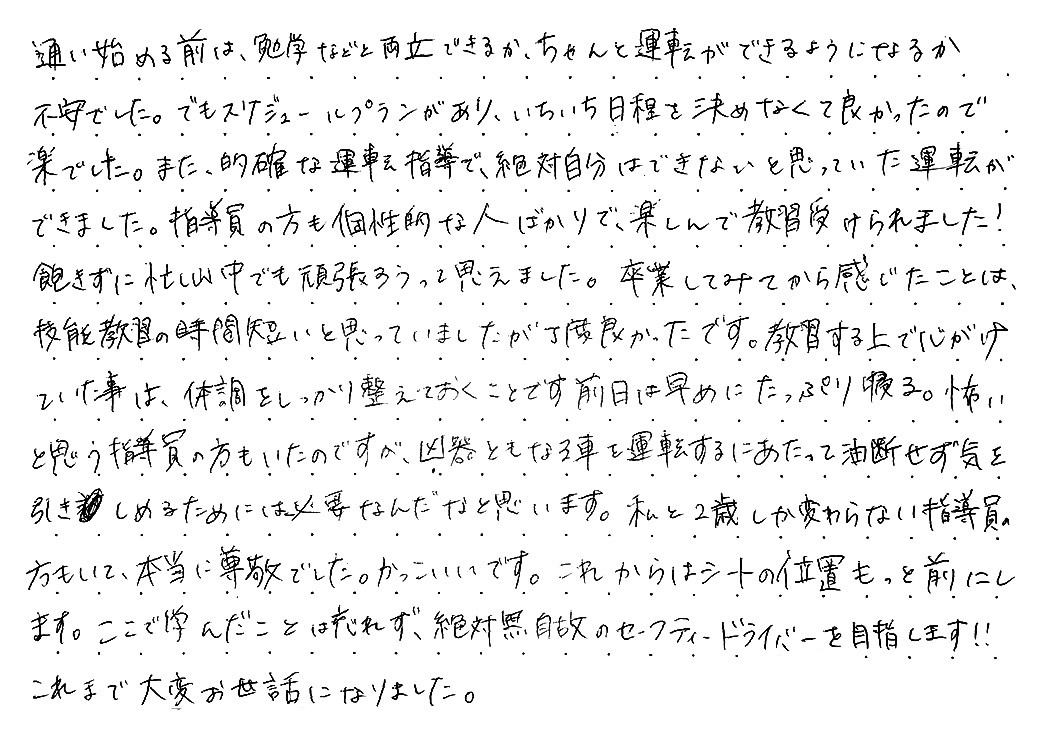 通い始める前は、勉学などと両立できるか、ちゃんと運転ができるようになるか
不安でした。でもスケジュールプランがあり、いちいち日程を決めなくて良かったので
楽でした。また、的確な運転指導で、絶対自分はできないと思っていた運転が
できました。指導員の方も個性的な人ばかりで、楽しんで教習受けられました!
飽きずに忙しい中でも頑張ろうって思えました。卒業してみてから感じたことは、
技能教習の時間短いと思っていましたが丁度良かったです。教習する上で心がけ
ていた事は、体調をしっかり整えておくことです前日は早めにたっぷり寝る。怖い
と思う指導員の方もいたのですが、凶器ともなる車を運転するにあたって油断せず気を
引きしめるためには必要なんだなと思います。私と2歳しか変わらない指導員の
方もいて、本当に尊敬でした。かっこいいです。これからはシートの位置もっと前にし
ます。ここで学んだことは忘れず、絶対無自故のセーフティードライバーを目指します!!
これまで大変お世話になりました。